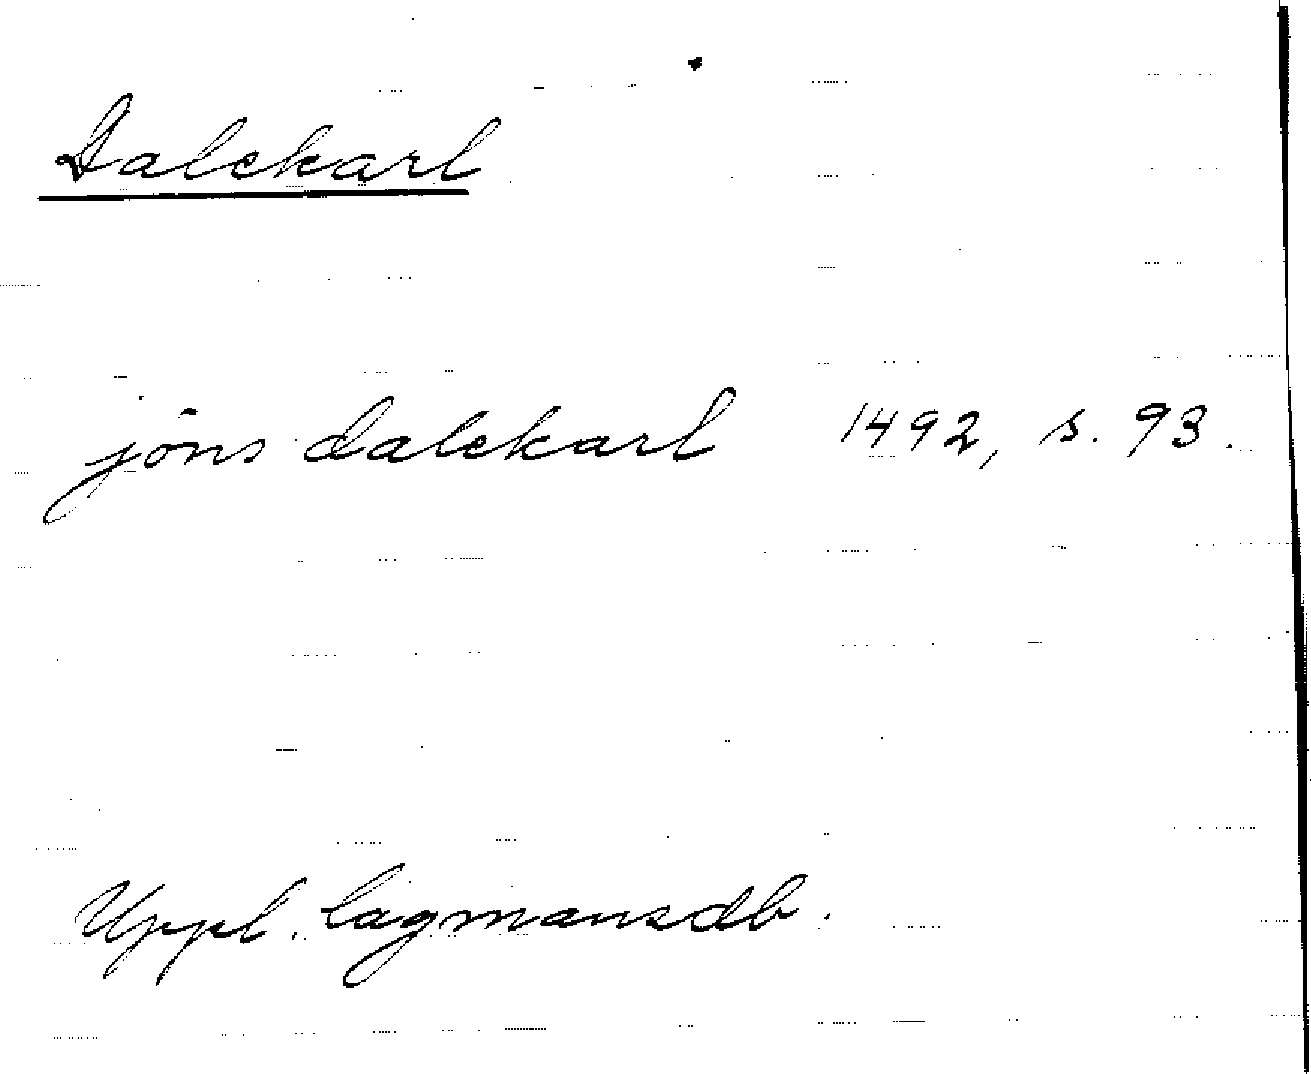 Dalekarl
jöns dalekarl 1492, s. 93.
Uppl. lagmansdb.